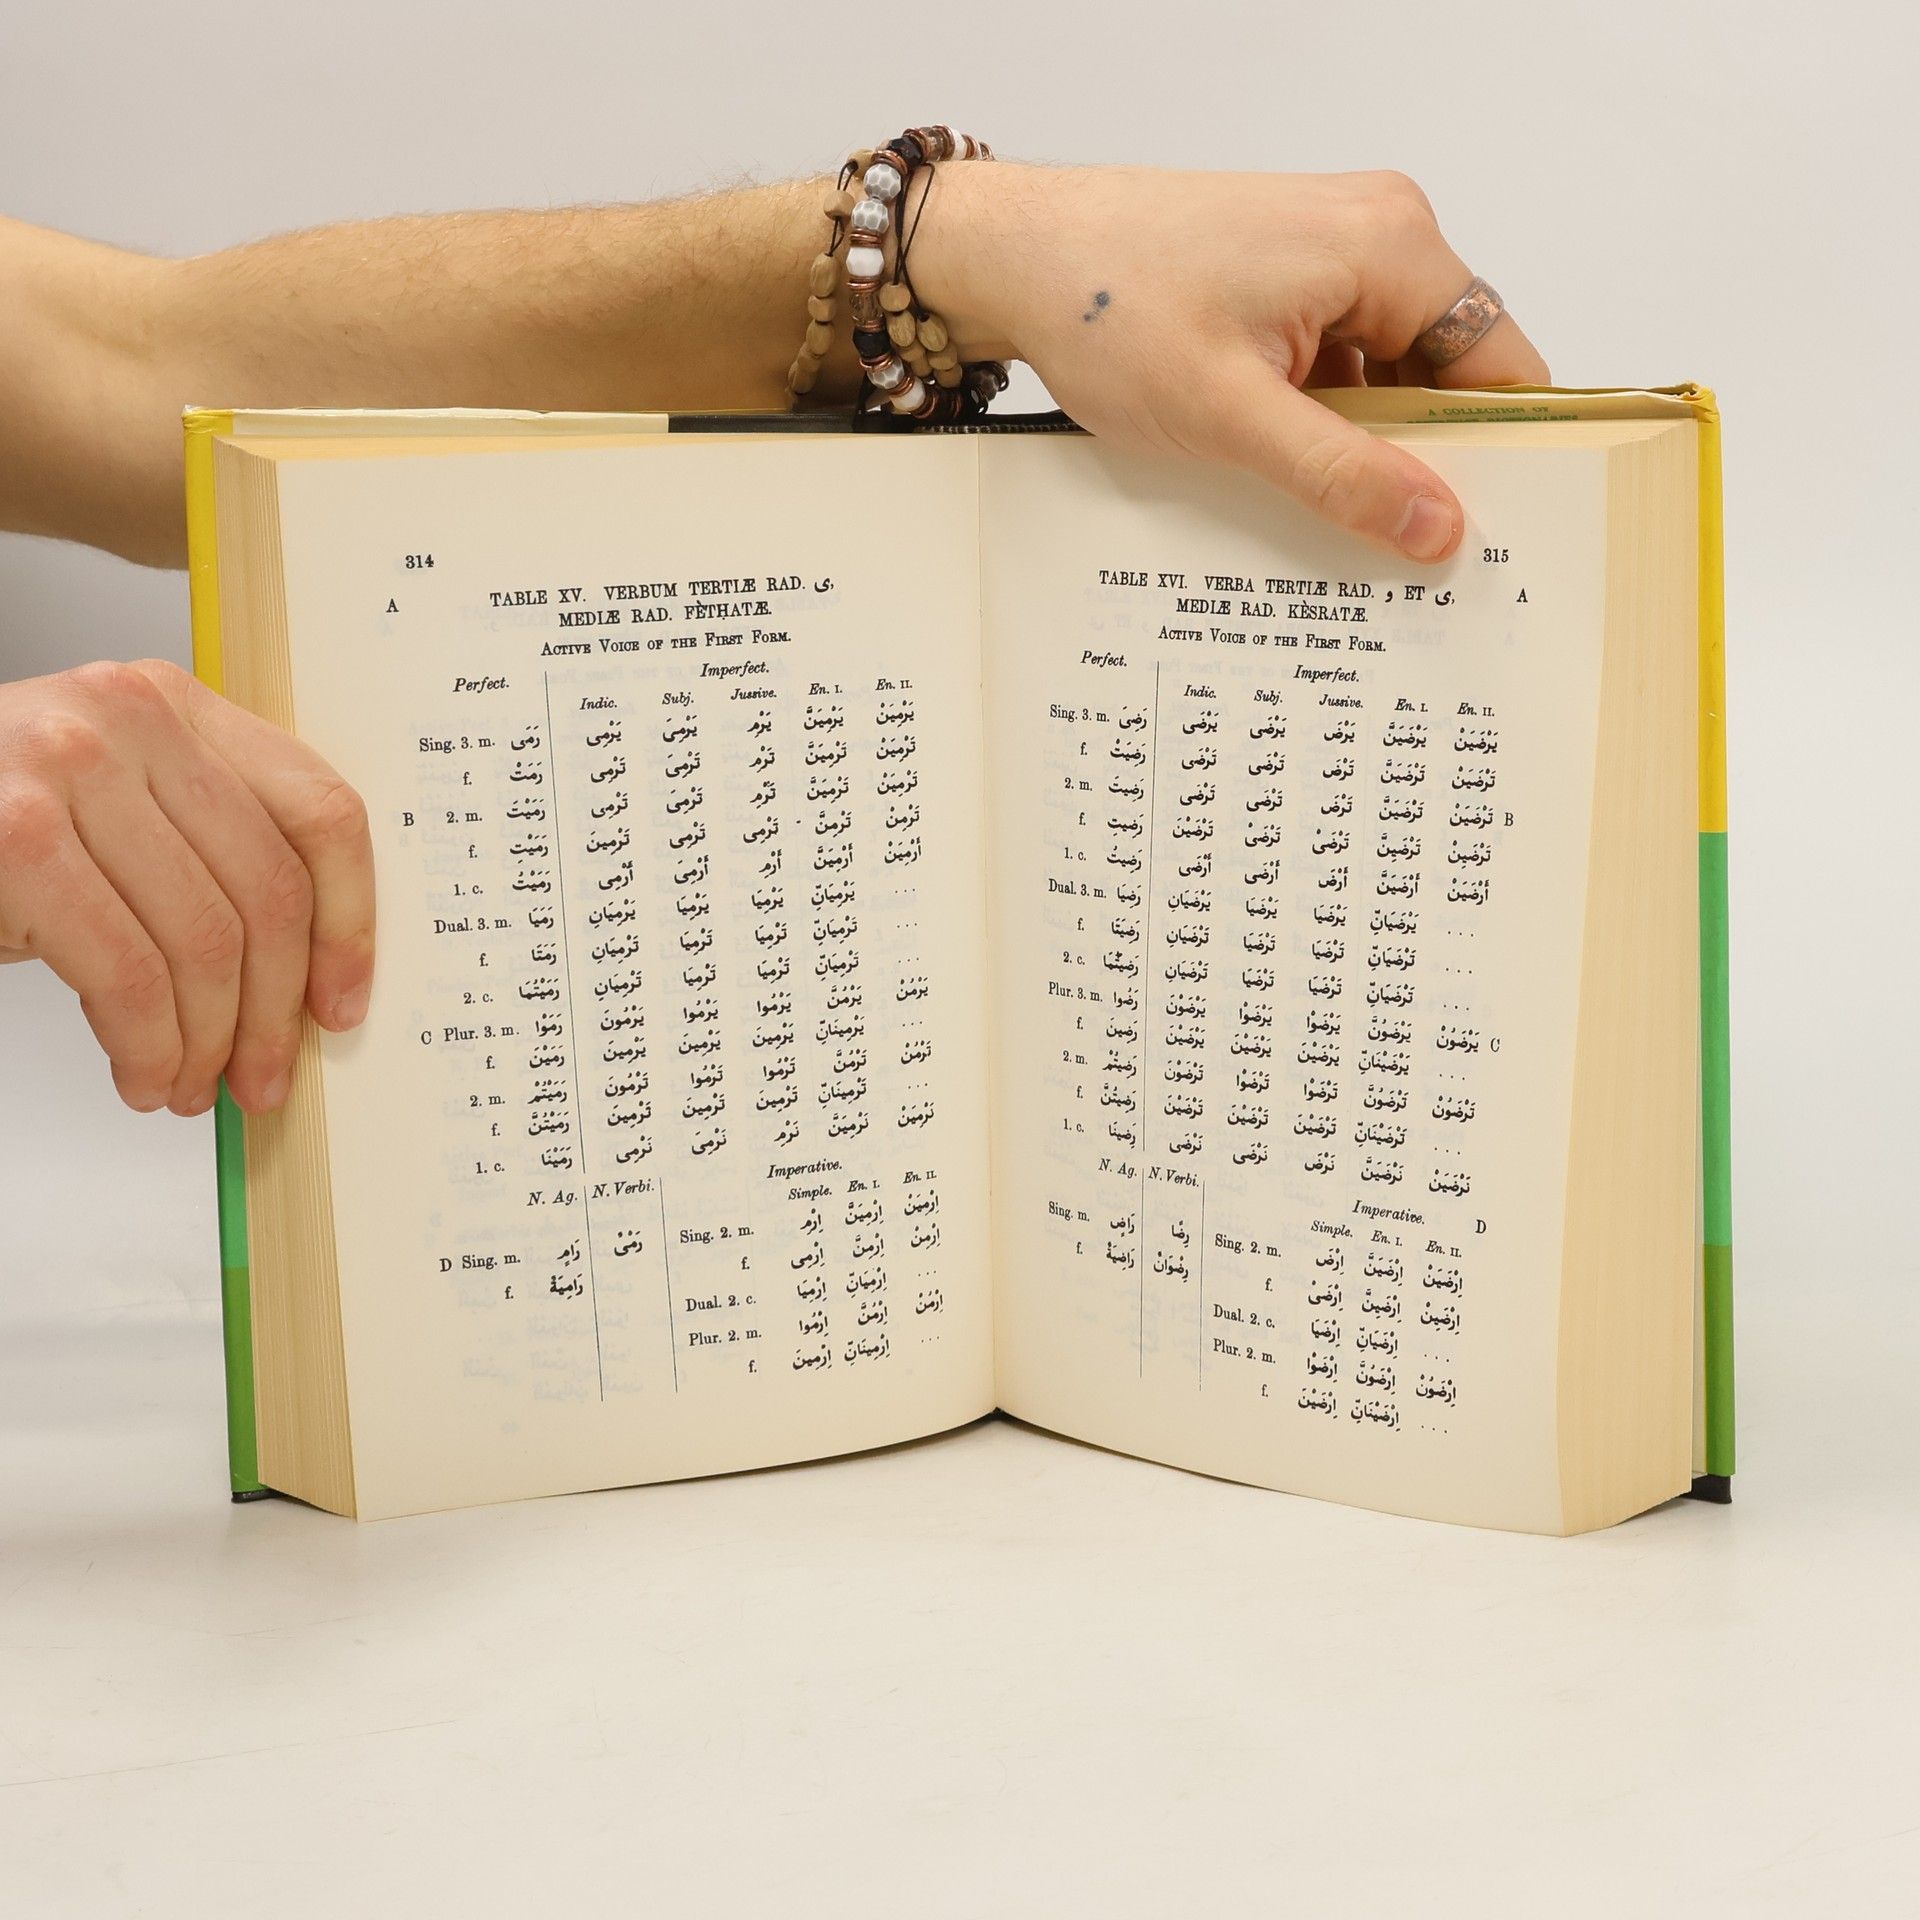 A COLLECTION OF
314
A TABLE XV. VERBUM TERTIÆ RAD. ى,
MEDIÆ RAD. FÈTḤATÆ.
Active Voice of the First Form.
Perfect. Imperfect.
Indic. Subj. Jussive. En. I. En. II.
Sing. 3. m. رَمَى يَرْمِى يَرْمِىَ يَرْمِ يَرْمِيَنَّ يَرْمِيَنْ
f. رَمَتْ تَرْمِى تَرْمِىَ تَرْمِ تَرْمِيَنَّ تَرْمِيَنْ
B 2. m. رَمَيْتَ تَرْمِى تَرْمِىَ تَرْمِ تَرْمِيَنَّ تَرْمِيَنْ
f. رَمَيْتِ تَرْمِينَ تَرْمِى تَرْمِى تَرْمِنَّ تَرْمِنْ
1. c. رَمَيْتُ أَرْمِى أَرْمِىَ أَرْمِ أَرْمِيَنَّ أَرْمِيَنْ
Dual. 3. m. رَمَيَا يَرْمِيَانِ يَرْمِيَا يَرْمِيَا يَرْمِيَانِّ ...
f. رَمَتَا تَرْمِيَانِ تَرْمِيَا تَرْمِيَا تَرْمِيَانِّ ...
2. c. رَمَيْتُمَا تَرْمِيَانِ تَرْمِيَا تَرْمِيَا تَرْمِيَانِّ ...
C Plur. 3. m. رَمَوْا يَرْمُونَ يَرْمُوا يَرْمُوا يَرْمُنَّ يَرْمُنْ
f. رَمَيْنَ يَرْمِينَ يَرْمِينَ يَرْمِينَ يَرْمِينَانِّ ...
2. m. رَمَيْتُمْ تَرْمُونَ تَرْمُوا تَرْمُوا تَرْمُنَّ تَرْمُنْ
f. رَمَيْتُنَّ تَرْمِينَ تَرْمِينَ تَرْمِينَ تَرْمِينَانِّ ...
1. c. رَمَيْنَا نَرْمِى نَرْمِىَ نَرْمِ نَرْمِيَنَّ نَرْمِيَنْ
N. Ag. N. Verbi. Imperative.
Simple. En. I. En. II.
Sing. 2. m. اِرْمِ اِرْمِيَنَّ اِرْمِيَنْ
D Sing. m. رَامٍ رَمْىٌ
f. اِرْمِى اِرْمِنَّ اِرْمِنْ
f. رَامِيَةٌ
Dual. 2. c. اِرْمِيَا اِرْمِيَانِّ ...
Plur. 2. m. اِرْمُوا اِرْمُنَّ اِرْمُنْ
f. اِرْمِينَ اِرْمِينَانِّ ...
315
TABLE XVI. VERBA TERTIÆ RAD. و ET ى, A
MEDIÆ RAD. KÈSRATÆ.
Active Voice of the First Form.
Perfect. Imperfect.
Indic. Subj. Jussive. En. I. En. II.
Sing. 3. m. رَضِىَ يَرْضَى يَرْضَى يَرْضَ يَرْضَيَنَّ يَرْضَيَنْ
f. رَضِيَتْ تَرْضَى تَرْضَى تَرْضَ تَرْضَيَنَّ تَرْضَيَنْ
2. m. رَضِيتَ تَرْضَى تَرْضَى تَرْضَ تَرْضَيَنَّ تَرْضَيَنْ B
f. رَضِيتِ تَرْضَيْنَ تَرْضَىْ تَرْضَىْ تَرْضَيِنَّ تَرْضَيِنْ
1. c. رَضِيتُ أَرْضَى أَرْضَى أَرْضَ أَرْضَيَنَّ أَرْضَيَنْ
Dual. 3. m. رَضِيَا يَرْضَيَانِ يَرْضَيَا يَرْضَيَا يَرْضَيَانِّ ...
f. رَضِيَتَا تَرْضَيَانِ تَرْضَيَا تَرْضَيَا تَرْضَيَانِّ ...
2. c. رَضِيتُمَا تَرْضَيَانِ تَرْضَيَا تَرْضَيَا تَرْضَيَانِّ ...
Plur. 3. m. رَضُوا يَرْضَوْنَ يَرْضَوْا يَرْضَوْا يَرْضَوُنَّ يَرْضَوُنْ C
f. رَضِينَ يَرْضَيْنَ يَرْضَيْنَ يَرْضَيْنَ يَرْضَيْنَانِّ ...
2. m. رَضِيتُمْ تَرْضَوْنَ تَرْضَوْا تَرْضَوْا تَرْضَوُنَّ تَرْضَوُنْ
f. رَضِيتُنَّ تَرْضَيْنَ تَرْضَيْنَ تَرْضَيْنَ تَرْضَيْنَانِّ ...
1. c. رَضِينَا نَرْضَى نَرْضَى نَرْضَ نَرْضَيَنَّ نَرْضَيَنْ
N. Ag. N. Verbi. Imperative. D
Simple. En. I. En. II.
Sing. m. رَاضٍ رِضًا Sing. 2. m. اِرْضَ اِرْضَيَنَّ اِرْضَيَنْ
f. رَاضِيَةٌ رِضْوَانٌ f. اِرْضَىْ اِرْضَيِنَّ اِرْضَيِنْ
Dual. 2. c. اِرْضَيَا اِرْضَيَانِّ ...
Plur. 2. m. اِرْضَوْا اِرْضَوُنَّ اِرْضَوُنْ
f. اِرْضَيْنَ اِرْضَيْنَانِّ ...